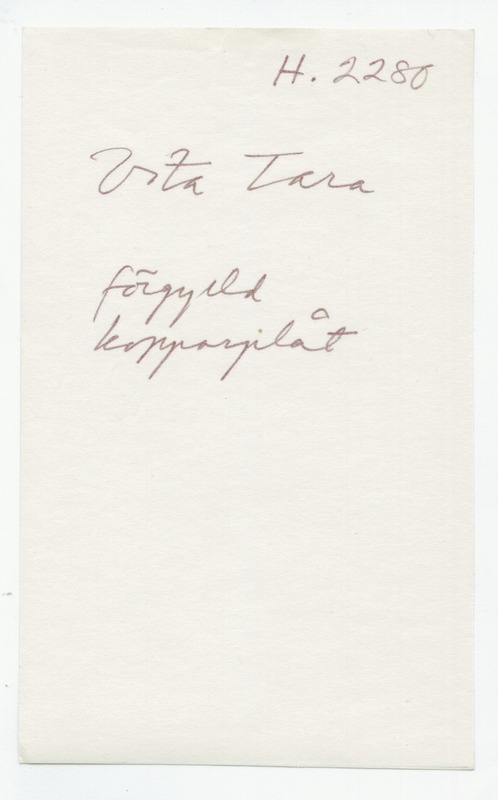 H. 2280
Vita Tara
förgylld
kopparplåt